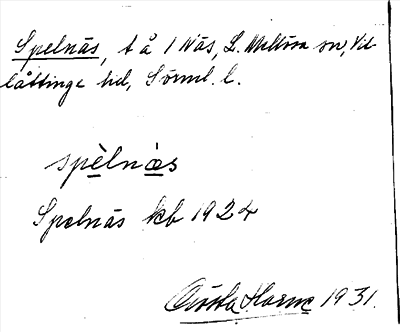 Spelnäs, t å 1 Näs, L. Mellösa sn, Vil-
låttinge hd, Sörml. l.
spèlnæs
Spelnäs kb 1924
Gösta Harne 1931.